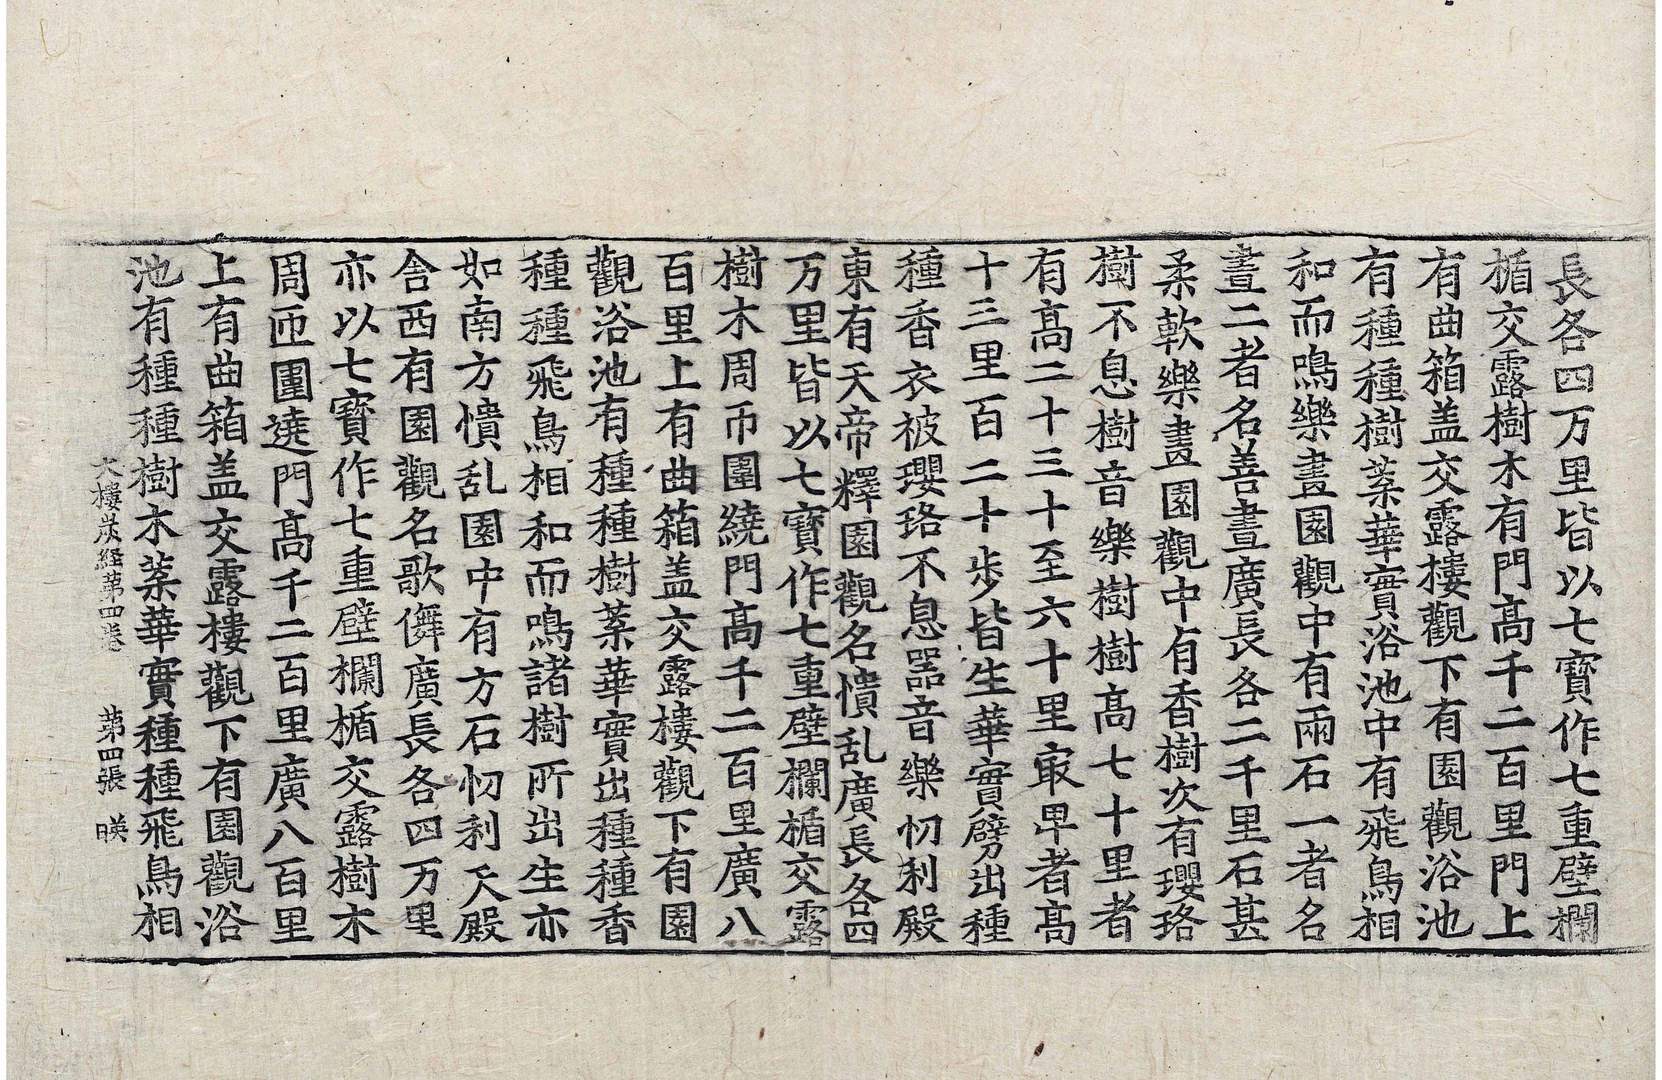 長各四万里皆以七寶作七重壁欄
楯交露樹木有門髙千二百里門上
有曲箱盖交露樓觀下有園觀浴池
有種種樹葉華實浴池中有飛鳥相
和而鳴樂晝園觀中有兩石一者名
晝二者名善晝廣長各二千里石甚
柔軟樂晝園觀中有香樹次有瓔珞
樹不息樹音樂樹樹髙七十里者
有髙二十三十至六十里㝡卑者髙
十三里百二十步皆生華實劈出種
種香衣被瓔珞不息器音樂忉利殿
東有天帝釋園觀名憒乱廣長各四
万里皆以七寶作七重壁欄楯交露
樹木周帀圍繞門髙千二百里廣八
百里上有曲箱盖交露樓觀下有園
觀浴池有種種樹葉華實出種種香
種種飛鳥相和而鳴諸樹所出生亦
如南方憒乱園中有方石忉利天殿
舍西有園觀名歌儛廣長各四万里
亦以七寶作七重壁欄楯交露樹木
周匝圍遶門髙千二百里廣八百里
上有曲箱盖交露樓觀下有園觀浴
池有種種樹木葉華實種種飛鳥相
大樓炭經第四卷 第四張 暎